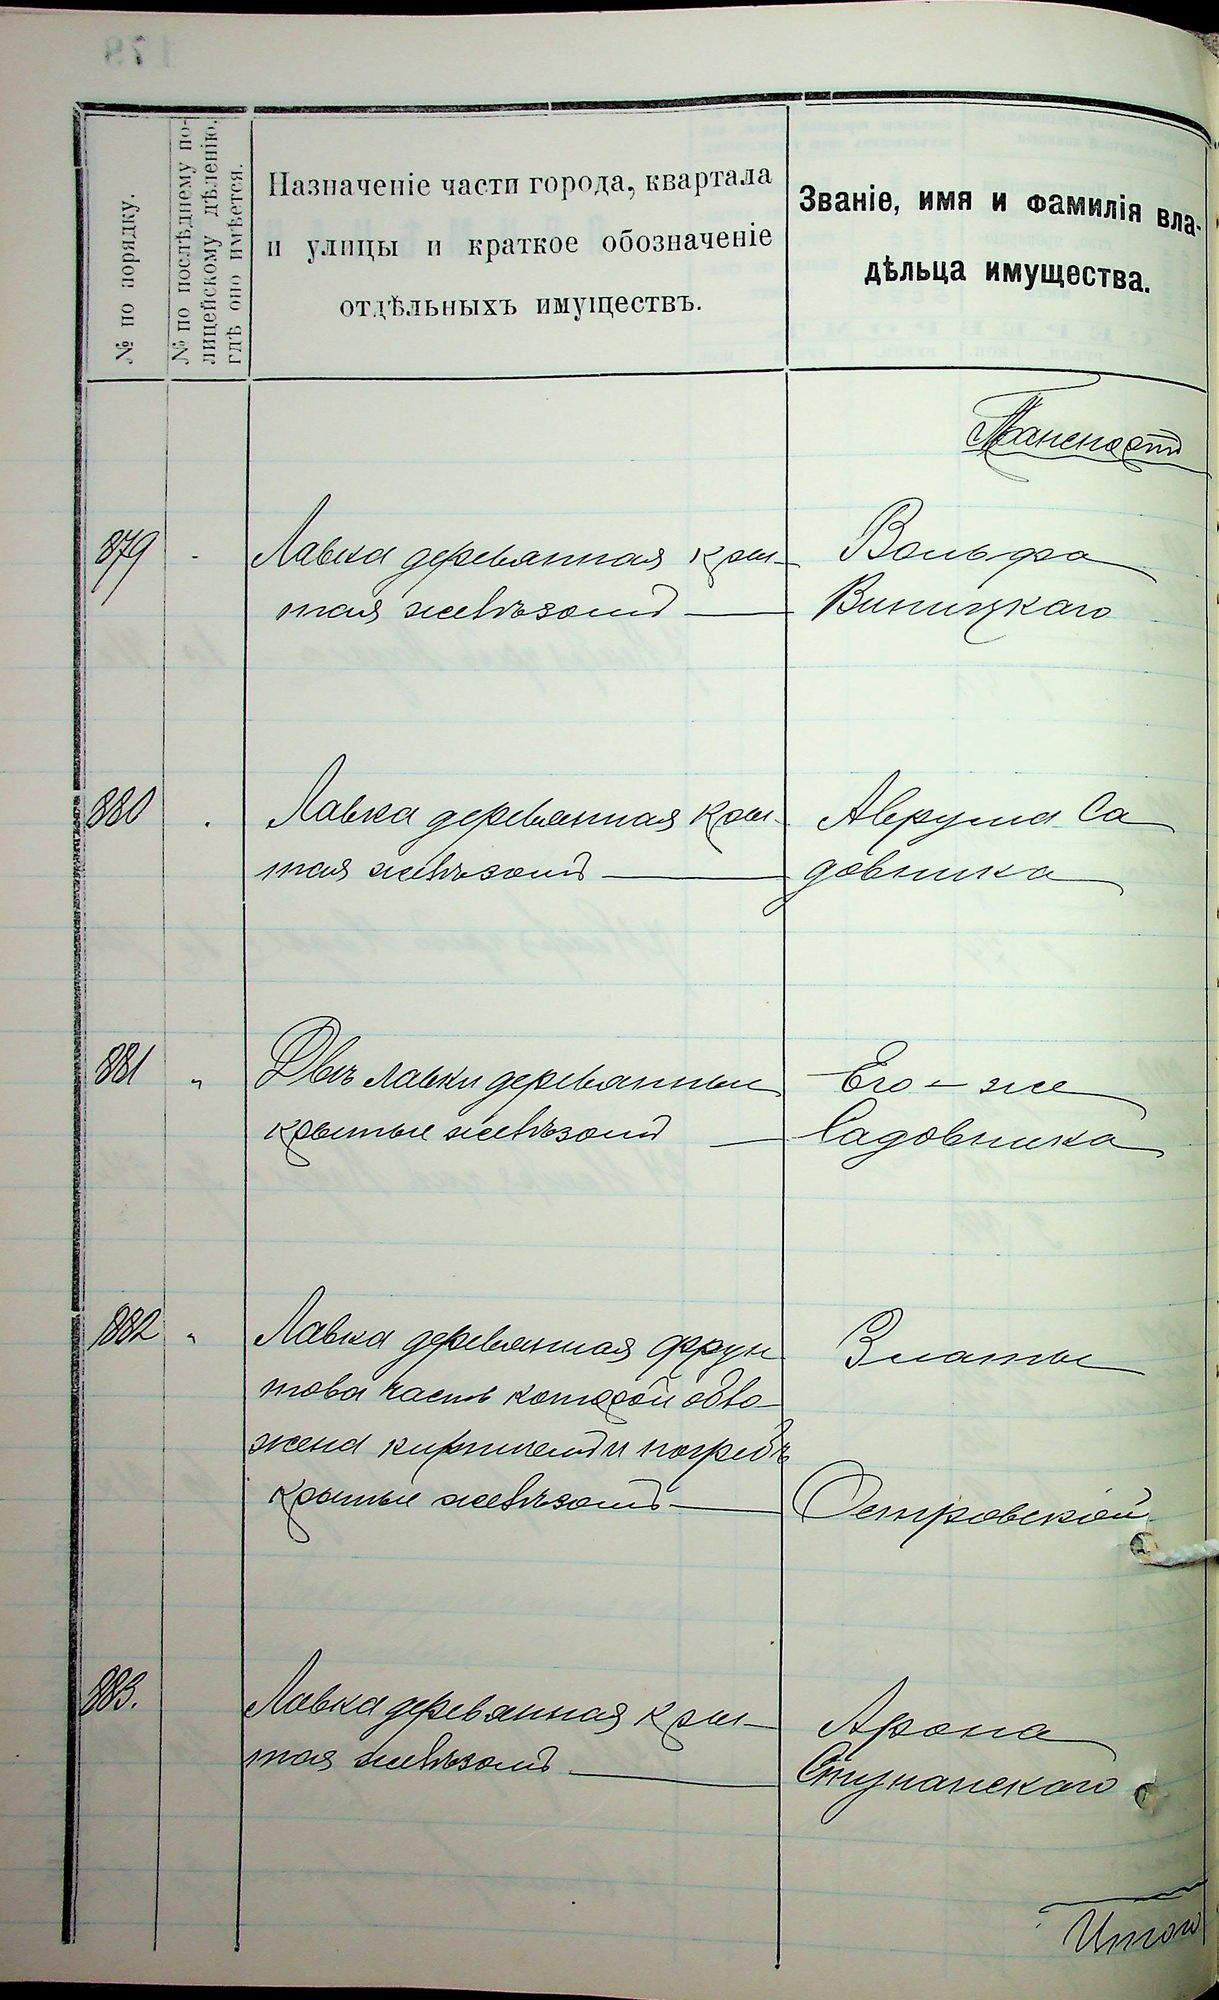 № по порядку.
№ по послѣднему по-
лицейскому дѣленію,
гдѣ оно имѣется.
Назначеніе части города, квартала
и улицы и краткое обозначеніе
отдѣльныхъ имуществъ.
Званіе, имя и фамилія вла-
дѣльца имущества.
879
Лавка деревянная кры-
тая желѣзомъ
Вольфа
Виницкаго
880
Лавка деревянная кры-
тая желѣзомъ
Аврума Са
довника
881 „
Двѣ лавки деревянныя
крытыя желѣзомъ
Его-же
Садовника
882 „
Лавка деревянная фрун
това часть которой обло-
жена кирпичемъ и погребъ
крытыя желѣзомъ
Златы
Островской
883.
Лавка деревянная кры-
тая желѣзомъ
Арона
Итого